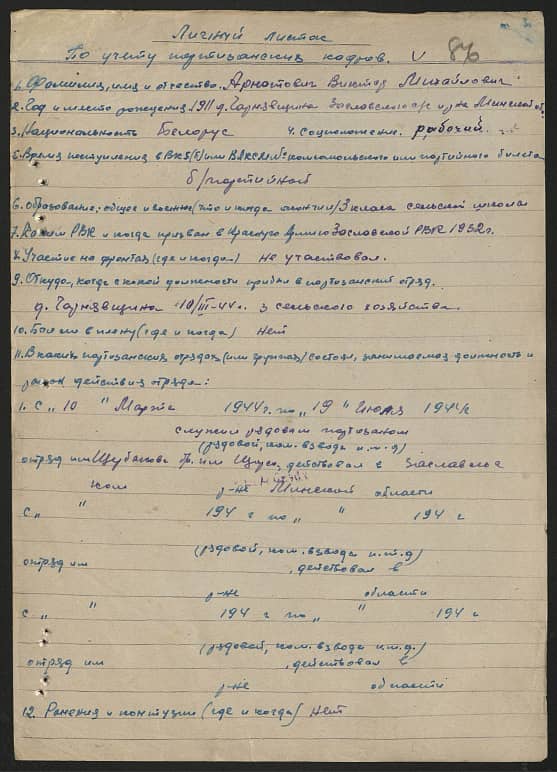 Личный листок
По учету партизанских кадров. 86
1. Фамилия, имя и отчество. Арнатович Виктор Михайлович
2. Год и место рождения 1911 д. Чарнявщина Заславского р-на Минской об.
3. Национальность Белорус 4. Соцположение. рабочий.
5. Время поступления в ВКП(б) или ВЛКСМ № комсомольского или партийного билета
б/партийной
6. Образование: общее и военное (что и когда окончил) 3 класа сельской школы
7. Каким РВК и когда призван в Красную Армию Заславской РВК 1932 г.
8. Участие на фронтах (где и когда) не участвовал.
9. Откуда, когда с какой должности прибыл в партизанский отряд.
д. Чарнявщина 10/III-44 г. з сельского хозяйства.
10. Был ли в плену (где и когда) Нет
11. В каких партизанских отрядах (или группах) состоял, занимаемая должность и
район действия отряда:
1. с „ 10 " Марта 1944 г. по „ 19 " Июля 1944 г
служил рядовым партизаном
(рядовой, ком. взвода и.т.д)
отряд им Щербакова бр. им Щорса, действовал в Заславско
ком р-не Минской области
с „ " 194 г по „ " 194 г
(рядовой, ком. взвода и.т.д)
отряд им , действовал в
р-не области
с „ " 194 г по „ " 194 г
(рядовой, ком. взвода и.т.д.)
отряд им , действовал в
р-не области
12. Ранения и контузии (где и когда) Нет